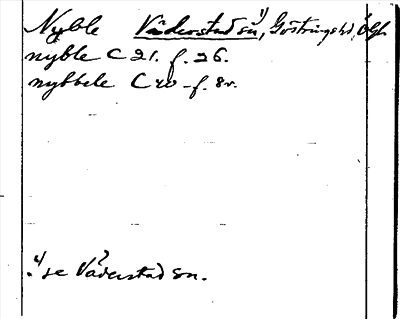 Nyble Väderstad sn,¹⁾ Göstringshd, Ögl.
nyble C 21. f. 26.
nybbele C 40 - f. 8v.
¹⁾ se Väderstad sn.